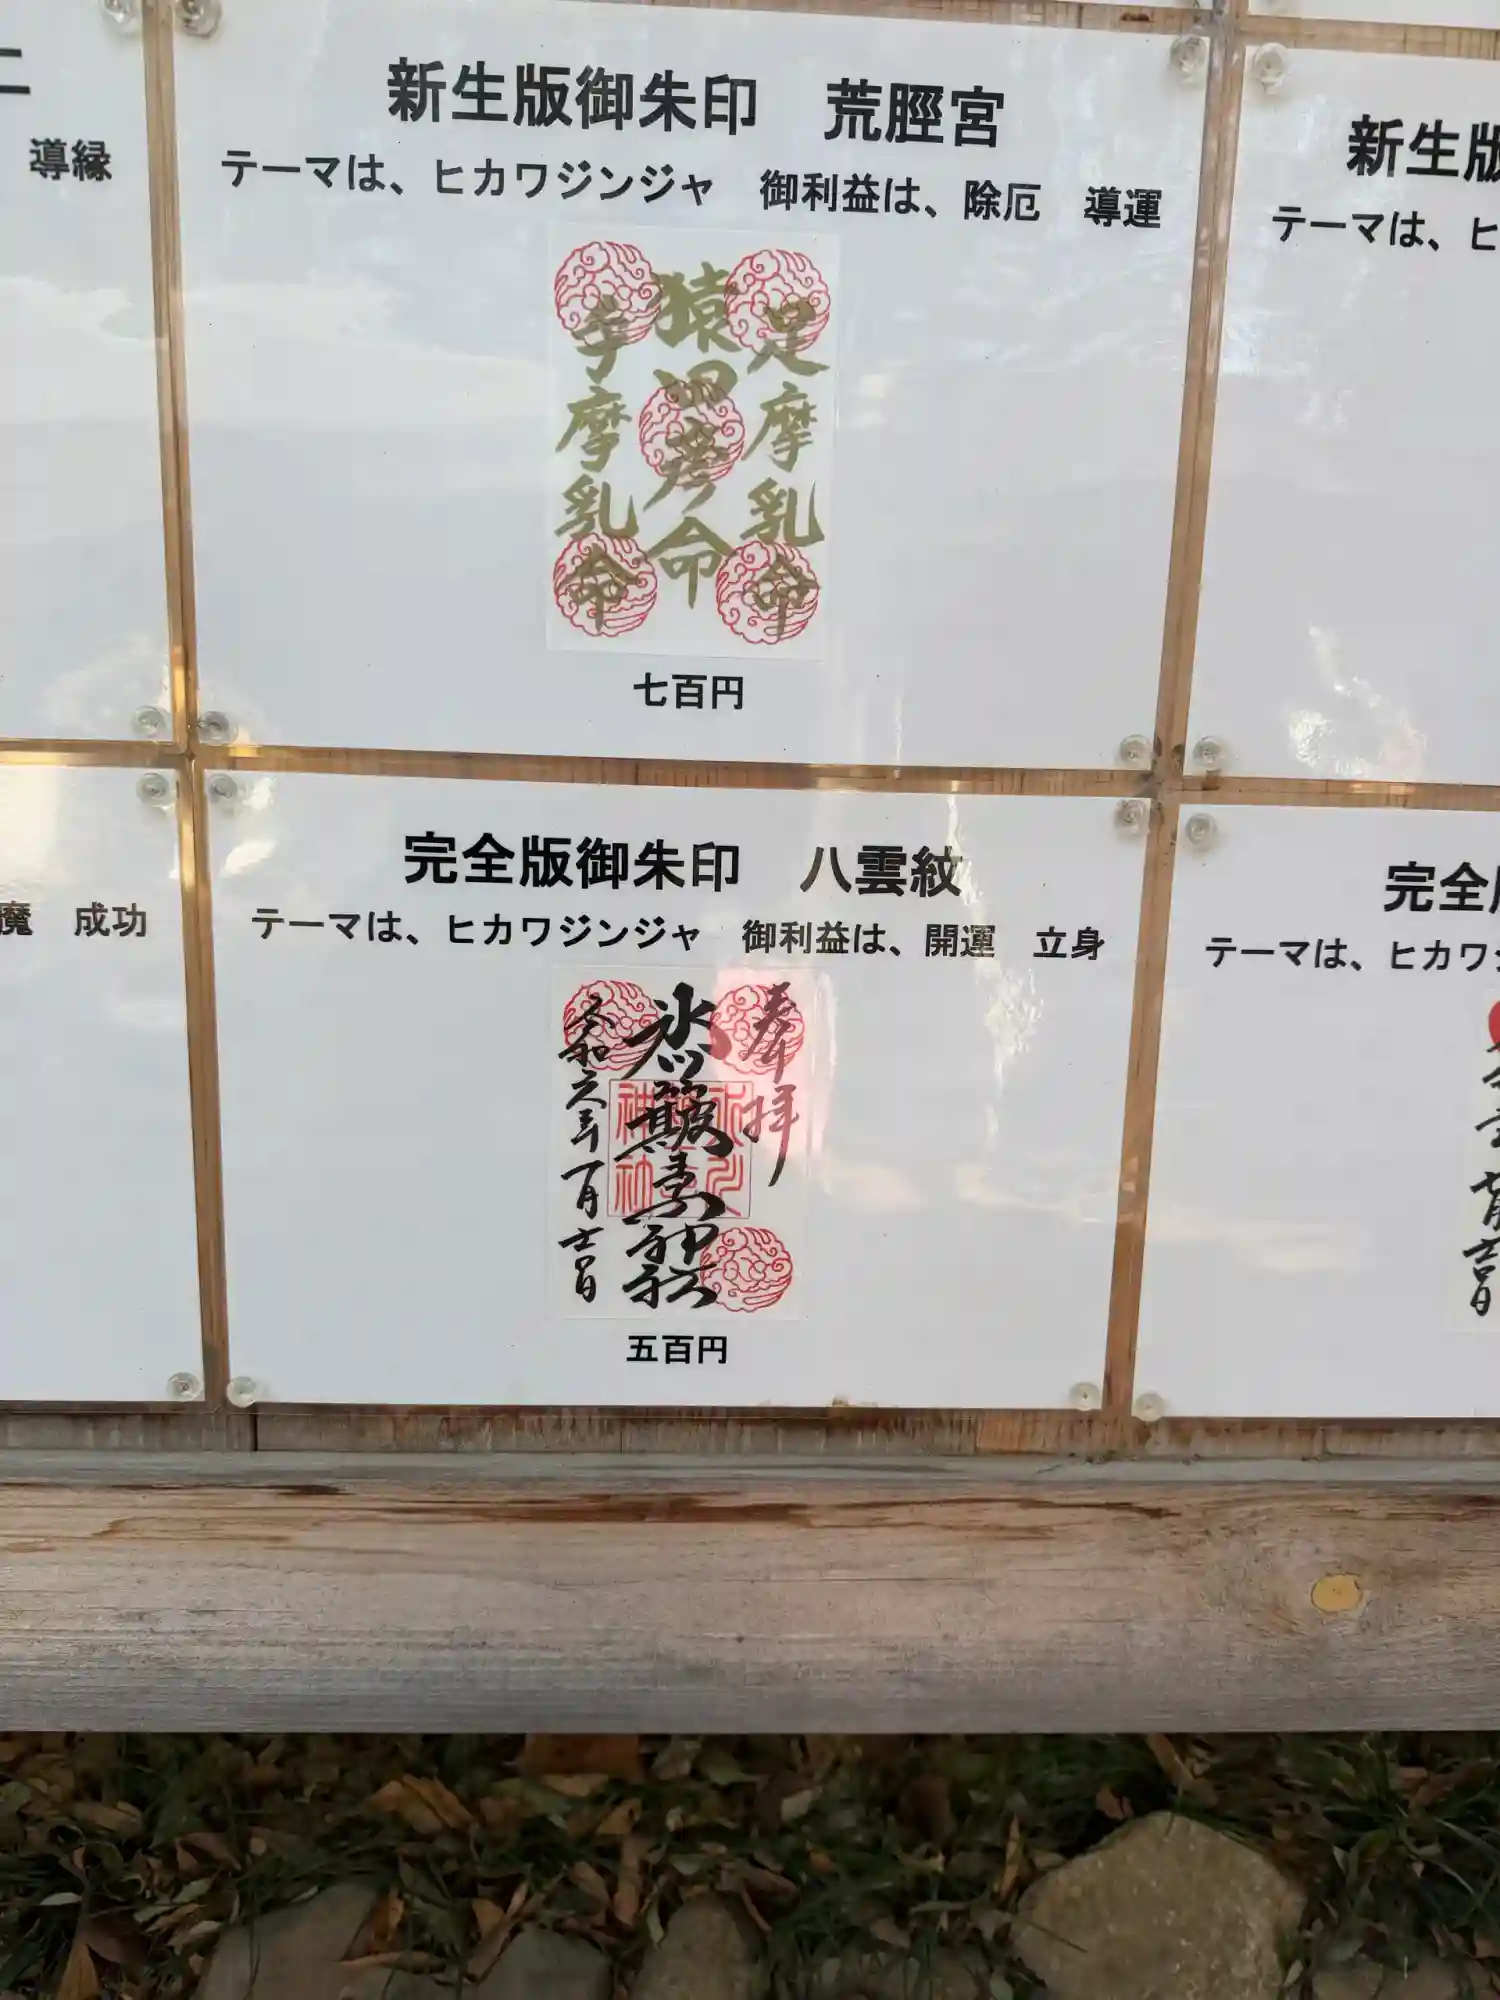 二
導縁
新生版御朱印　荒脛宮
テーマは、ヒカワジンジャ　御利益は、除厄　導運
足摩乳命
猿田彦命
手摩乳命
七百円
新生版
テーマは、ヒ
魔　成功
完全版御朱印　八雲紋
テーマは、ヒカワジンジャ　御利益は、開運　立身
奉拝
氷川簸王子神社
令和六年一月吉日
五百円
完全版
テーマは、ヒカワ
吉日